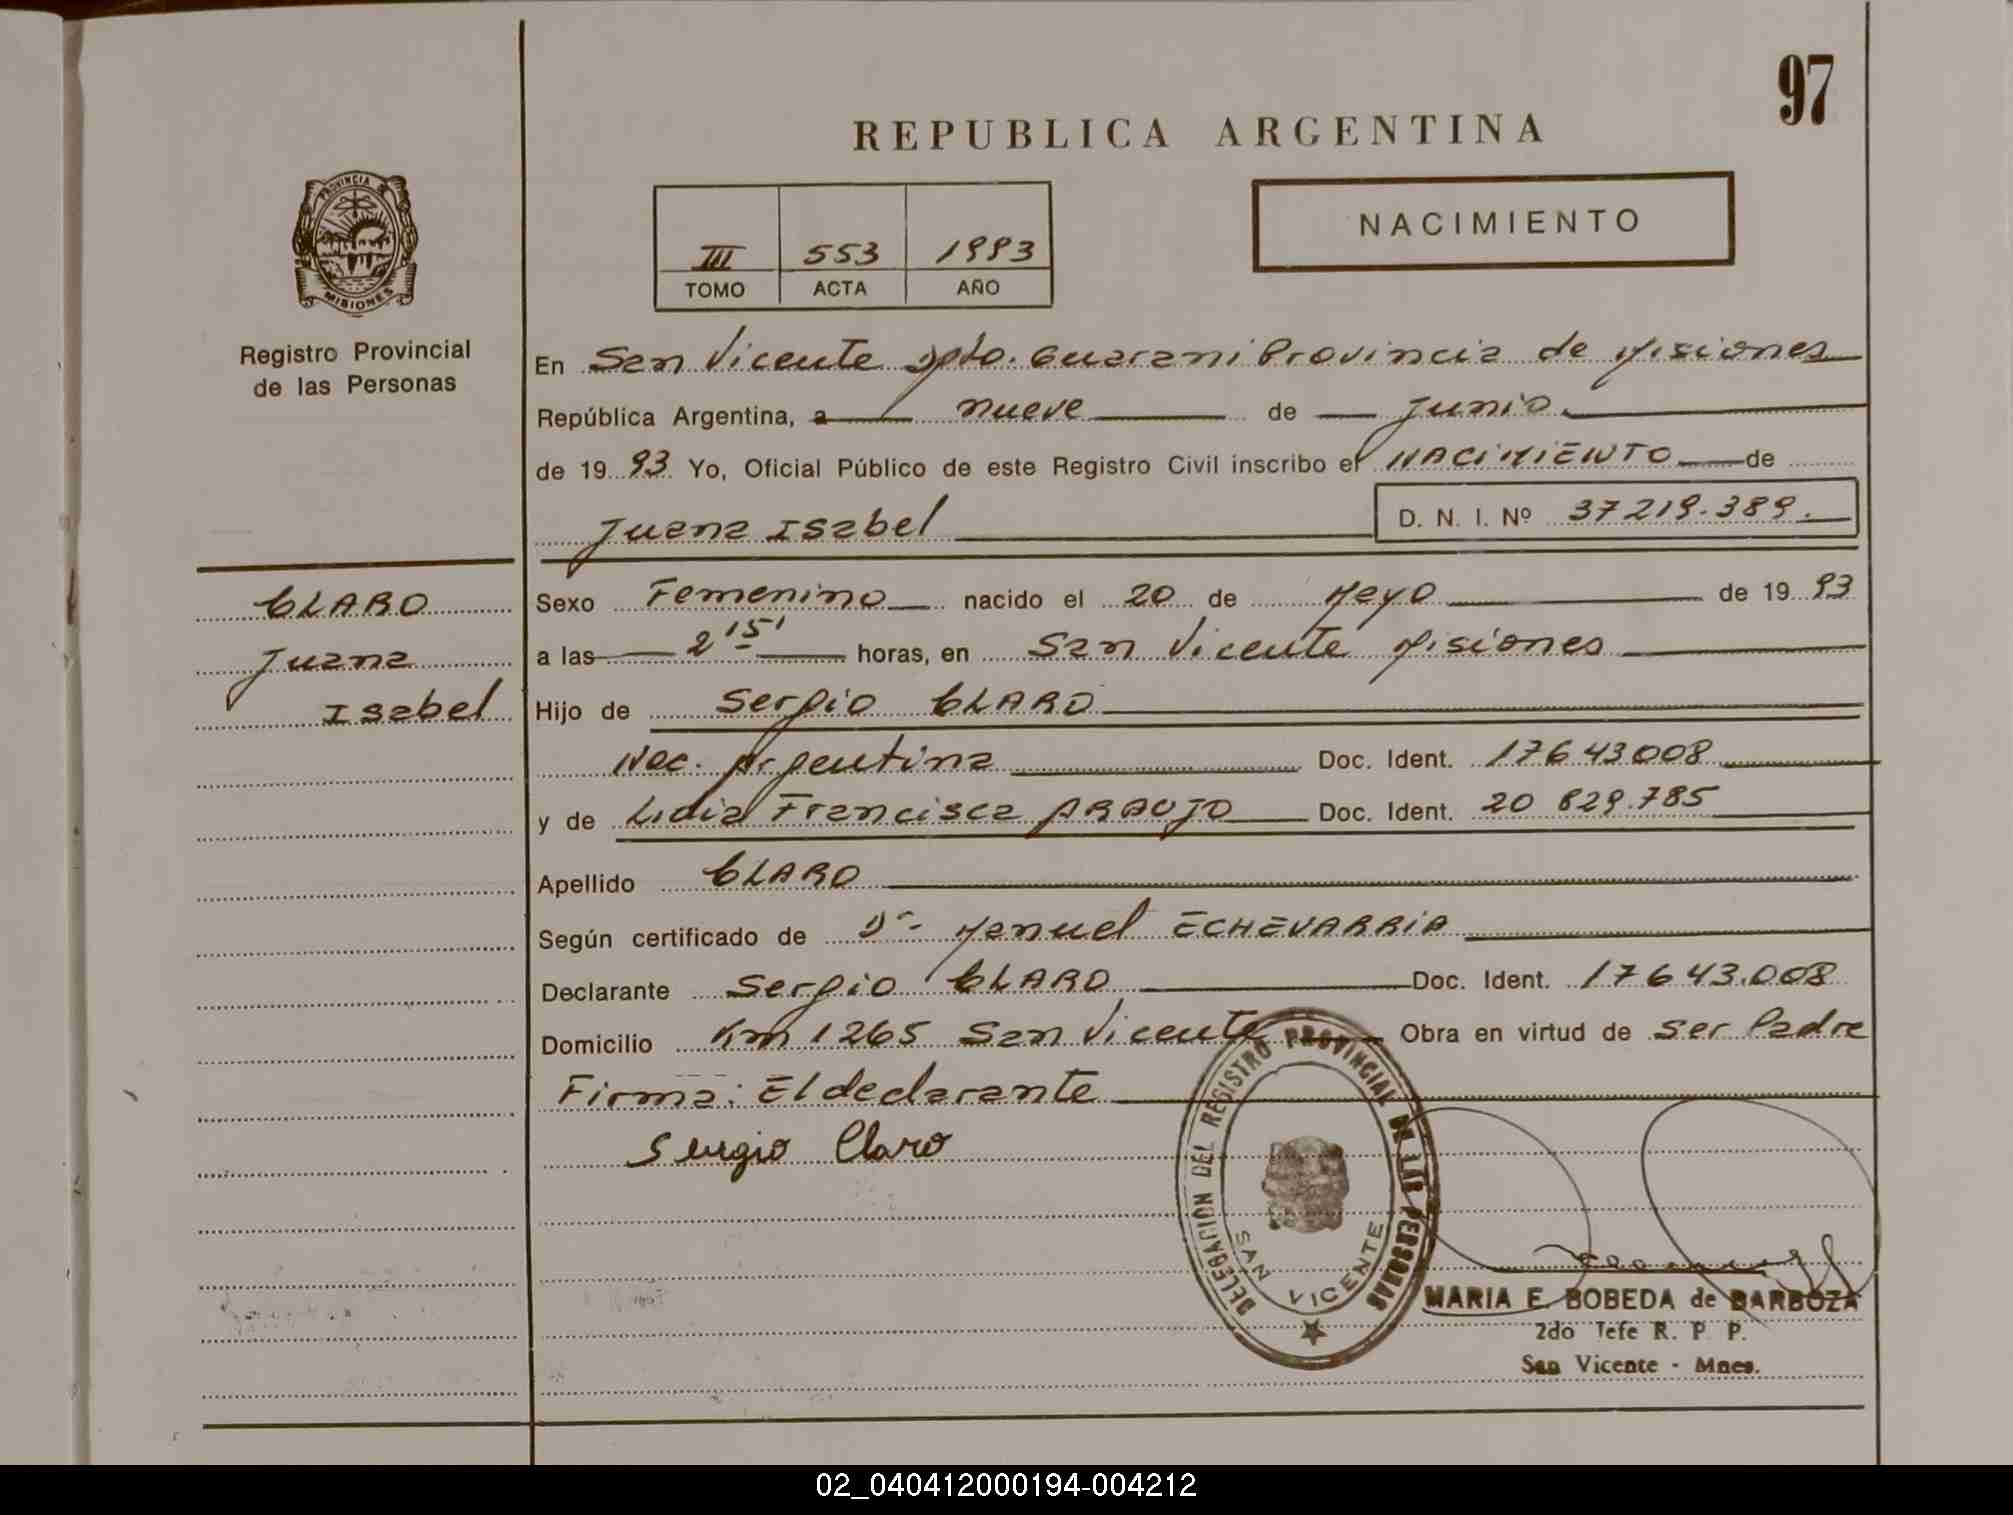 97
REPUBLICA ARGENTINA
PROVINCIA DE
MISIONES
Registro Provincial
de las Personas
III 553 1993
TOMO ACTA AÑO
NACIMIENTO
En San Vicente Dpto. Guarani Provincia de Misiones
República Argentina, a nueve de Junio
de 19 93 Yo, Oficial Público de este Registro Civil inscribo el NACIMIENTO de
Juana Isabel D. N. I. Nº 37219.389.
CLARO
Juana
Isabel
Sexo Femenino nacido el 20 de Mayo de 19 93
a las 2 15' horas, en San Vicente Misiones
Hijo de Sergio CLARO
Nac. Argentina Doc. Ident. 17643.008
y de Lidia Francisca ARAUJO Doc. Ident. 20 829.785
Apellido CLARO
Según certificado de Dr. Manuel ECHEVARRIA
Declarante Sergio CLARO Doc. Ident. 17643.008
Domicilio Km 1265 San Vicente Obra en virtud de ser Padre
Firma: El declarante
Sergio Claro
DELEGACION DEL REGISTRO PROVINCIAL DE LAS PERSONAS
SAN VICENTE
MARIA E. BOBEDA de BARBOZA
2do Jefe R. P. P.
San Vicente - Mnes.
02_040412000194-004212